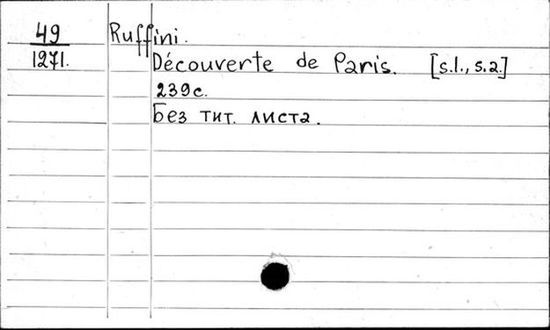 49
1271.
Ruffini.
Découverte de Paris. [s.l., s.a.]
239с.
Без тит. листа.